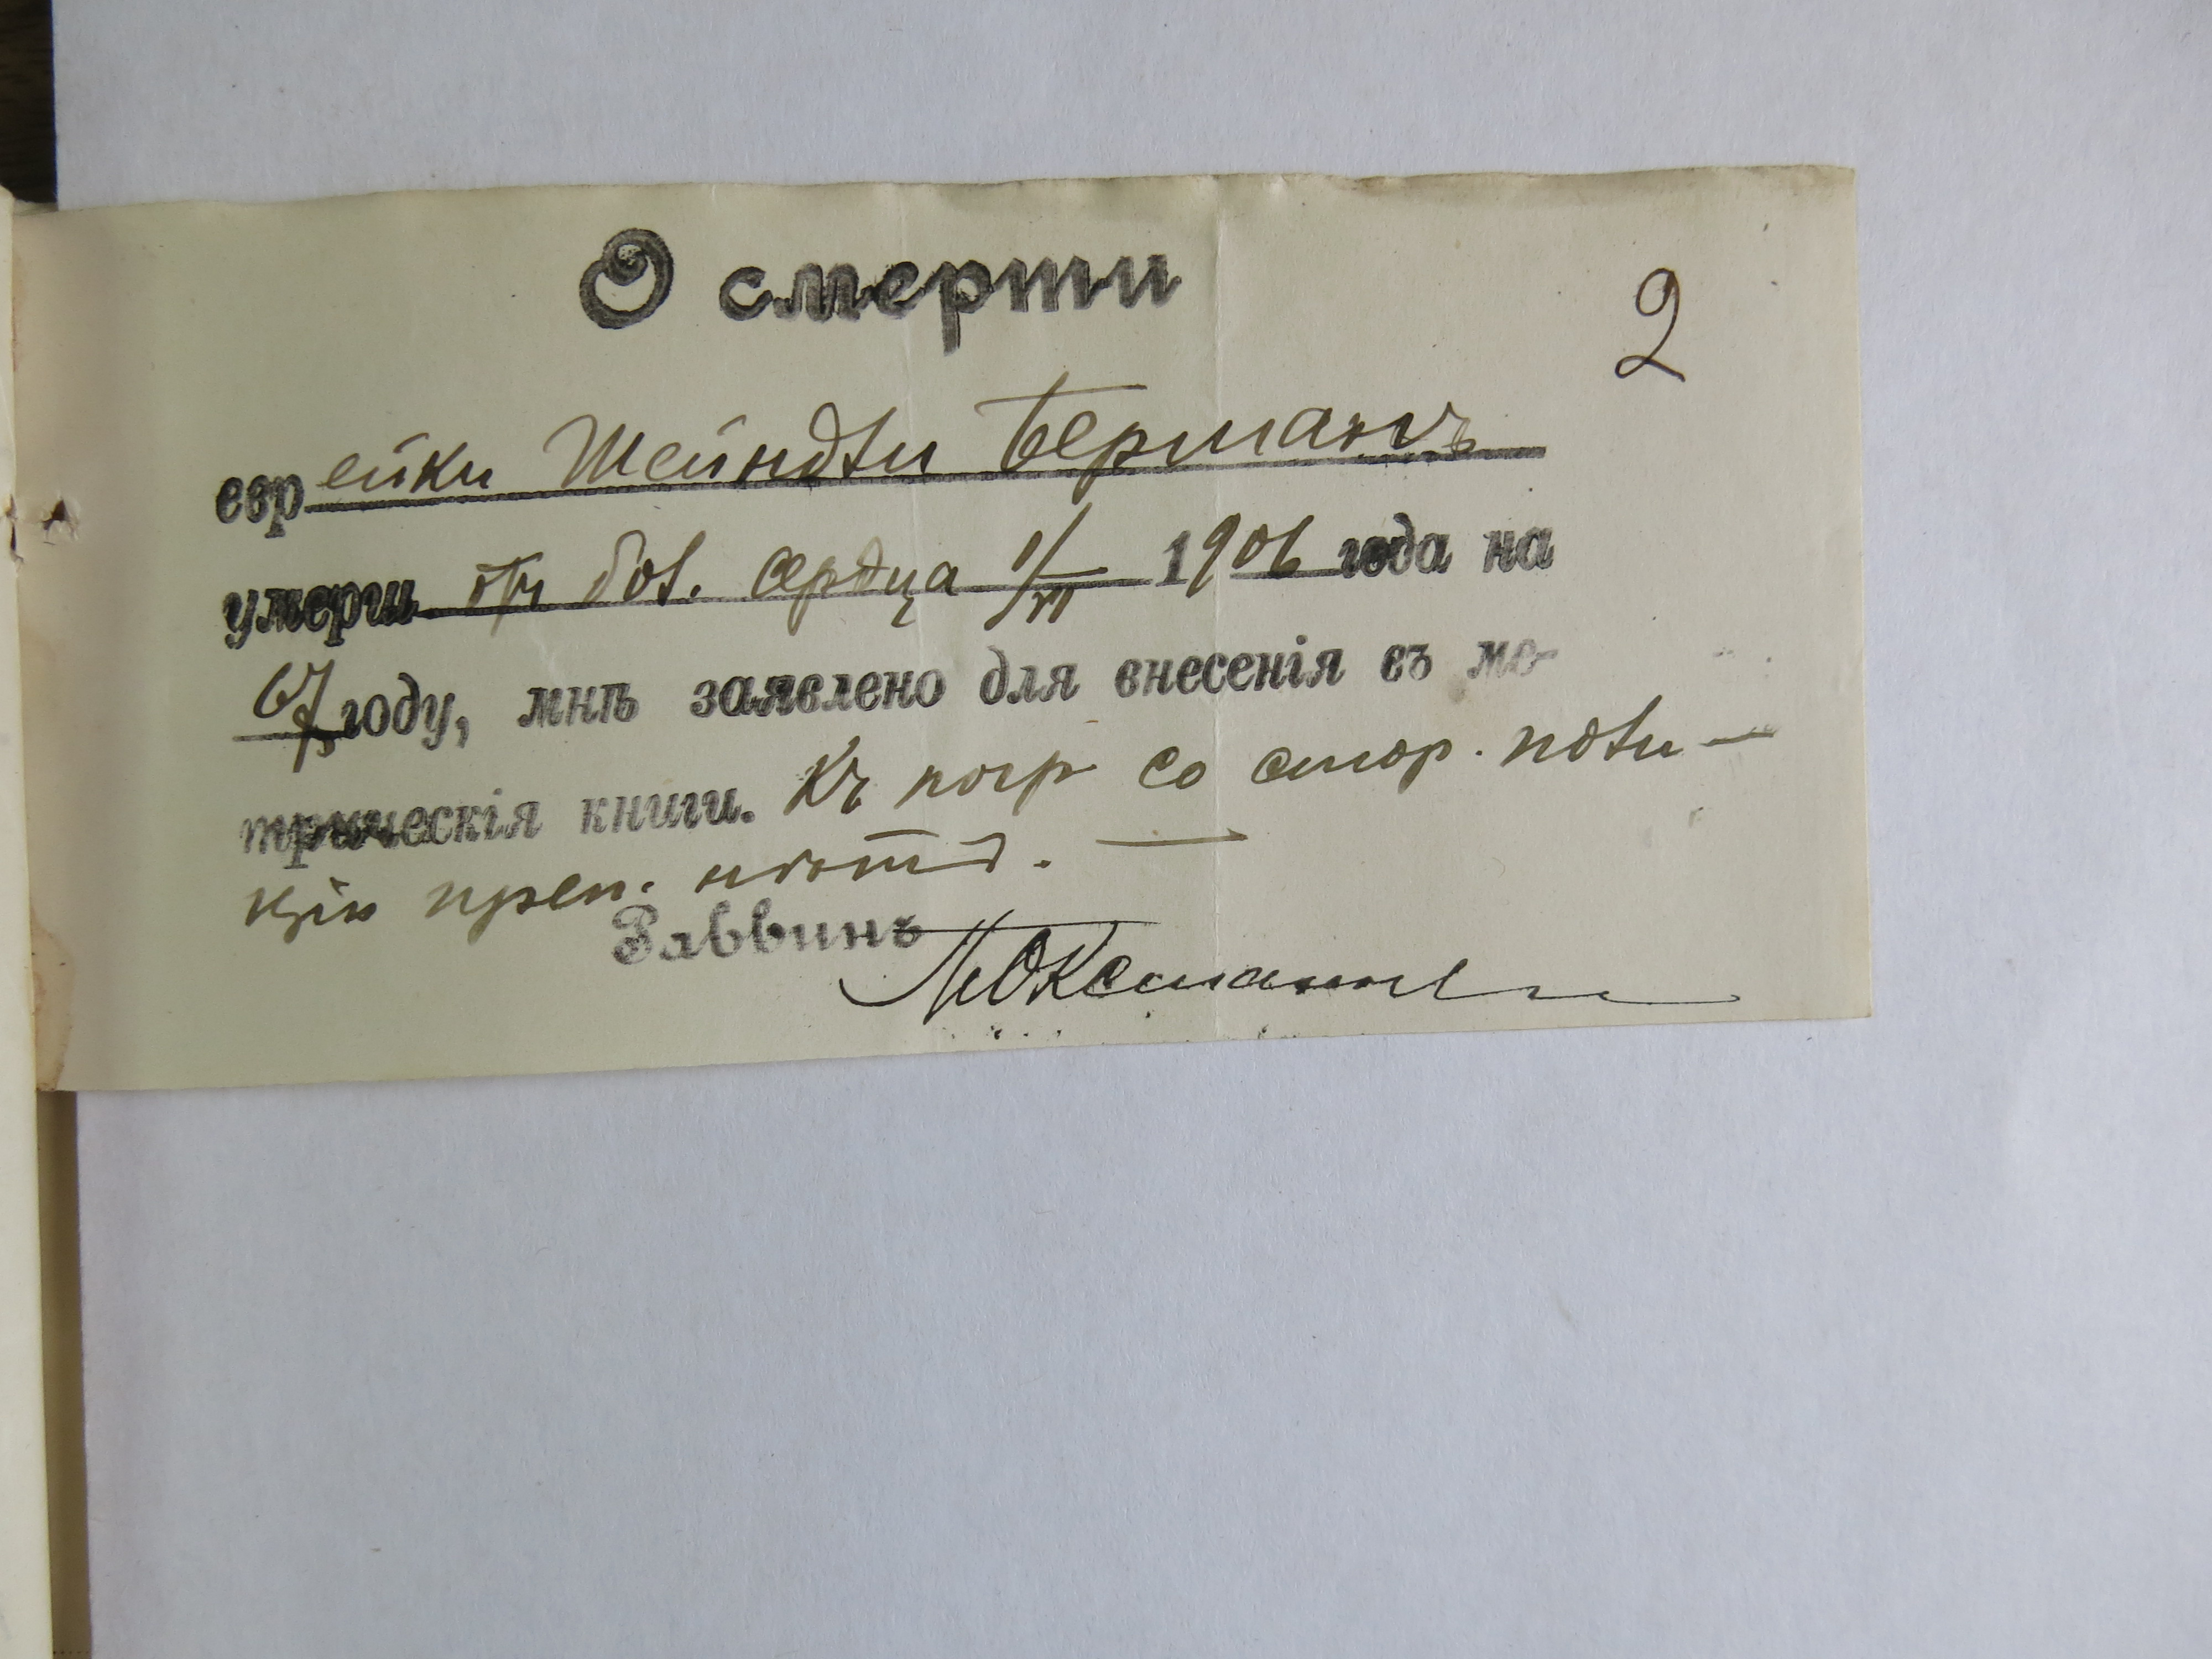 О смерти
2
еврейки Шейндли Берманъ
умерш. отъ бол. сердца 1/VII 1906 года на
67 году, мнѣ заявлено для внесенія въ ме-
трическія книги. Къ погр со стор. поли-
ціи преп. нѣтъ. —
Раввинъ